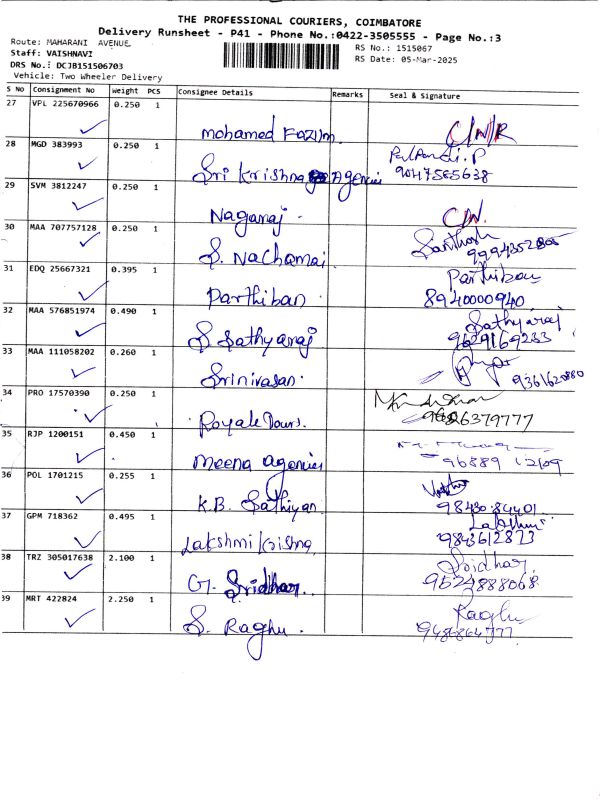 THE PROFESSIONAL COURIERS, COIMBATORE
Delivery Runsheet - P41 - Phone No.:0422-3505555 - Page No.:3
Route: MAHARANI AVENUE
RS No.: 1515067
Staff: VAISHNAVI
RS Date: 05-Mar-2025
DRS No.: DCJB151506703
Vehicle: Two Wheeler Delivery
S No Consignment No Weight PCS Consignee Details Remarks Seal & Signature
27 VPL 225670966 0.250 1
Mohamed Fazilm C/N/R
28 MGD 383993 0.250 1
Sri Krishna Agencies 9047565638
29 SVM 3812247 0.250 1
Nagaraj. C/N.
30 MAA 707757128 0.250 1
S. Nachamai Santhosh
31 EDQ 25667321 0.395 1
Parthiban Parthiban
8940000940
32 MAA 576851974 0.490 1
S Sathyaraj Sathyaraj
9629169233
33 MAA 111058202 0.260 1
Srinivasan. 9361620880
34 PRO 17570390 0.250 1
Royale Tours.
35 RJP 1200151 0.450 1
Meena agencies 96889 12109
36 POL 1701215 0.255 1
K.B. Sathiyan 9843084401
37 GPM 718362 0.495 1
Lakshmi Krishna Lakshmi
9843612873
38 TRZ 305017638 2.100 1
G. Sridhar Sridhar
9524888068
39 MRT 422824 2.250 1
S. Raghu. Raghu
9486864777